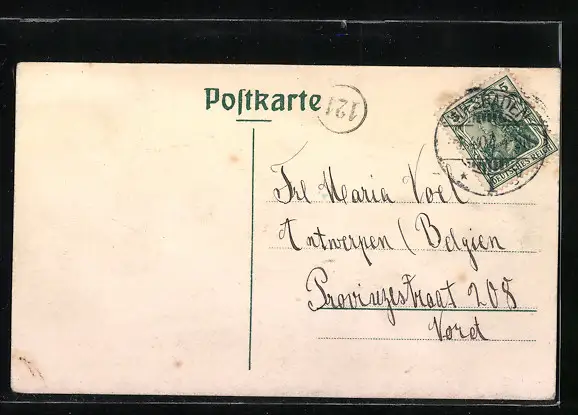 Postkarte
121
WIESBADEN
DEUTSCHES REICH
Frl Maria Voèl
Antwerpen (Belgien
Provinzestraat 208
Nord